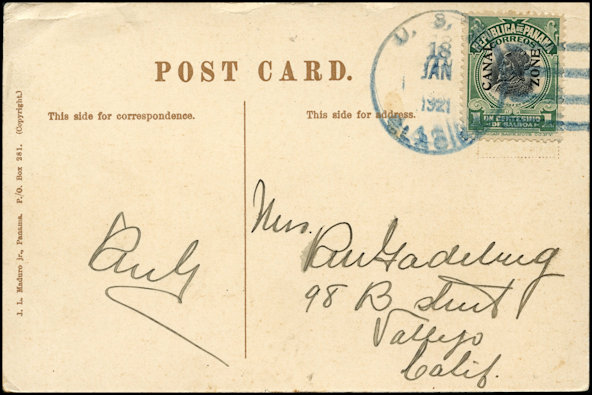 POST CARD.
This side for correspondence.
This side for address.
J. L. Maduro jr., Panama. P./O. Box 281. (Copyright.)
U. S.
18
JAN
1921
REPUBLICA DE PANAMA
CORREOS
CANAL
ZONE
1 UN CENTESIMO 1
DE BALBOA
Mrs.
98 B street
Vallejo
Calif.